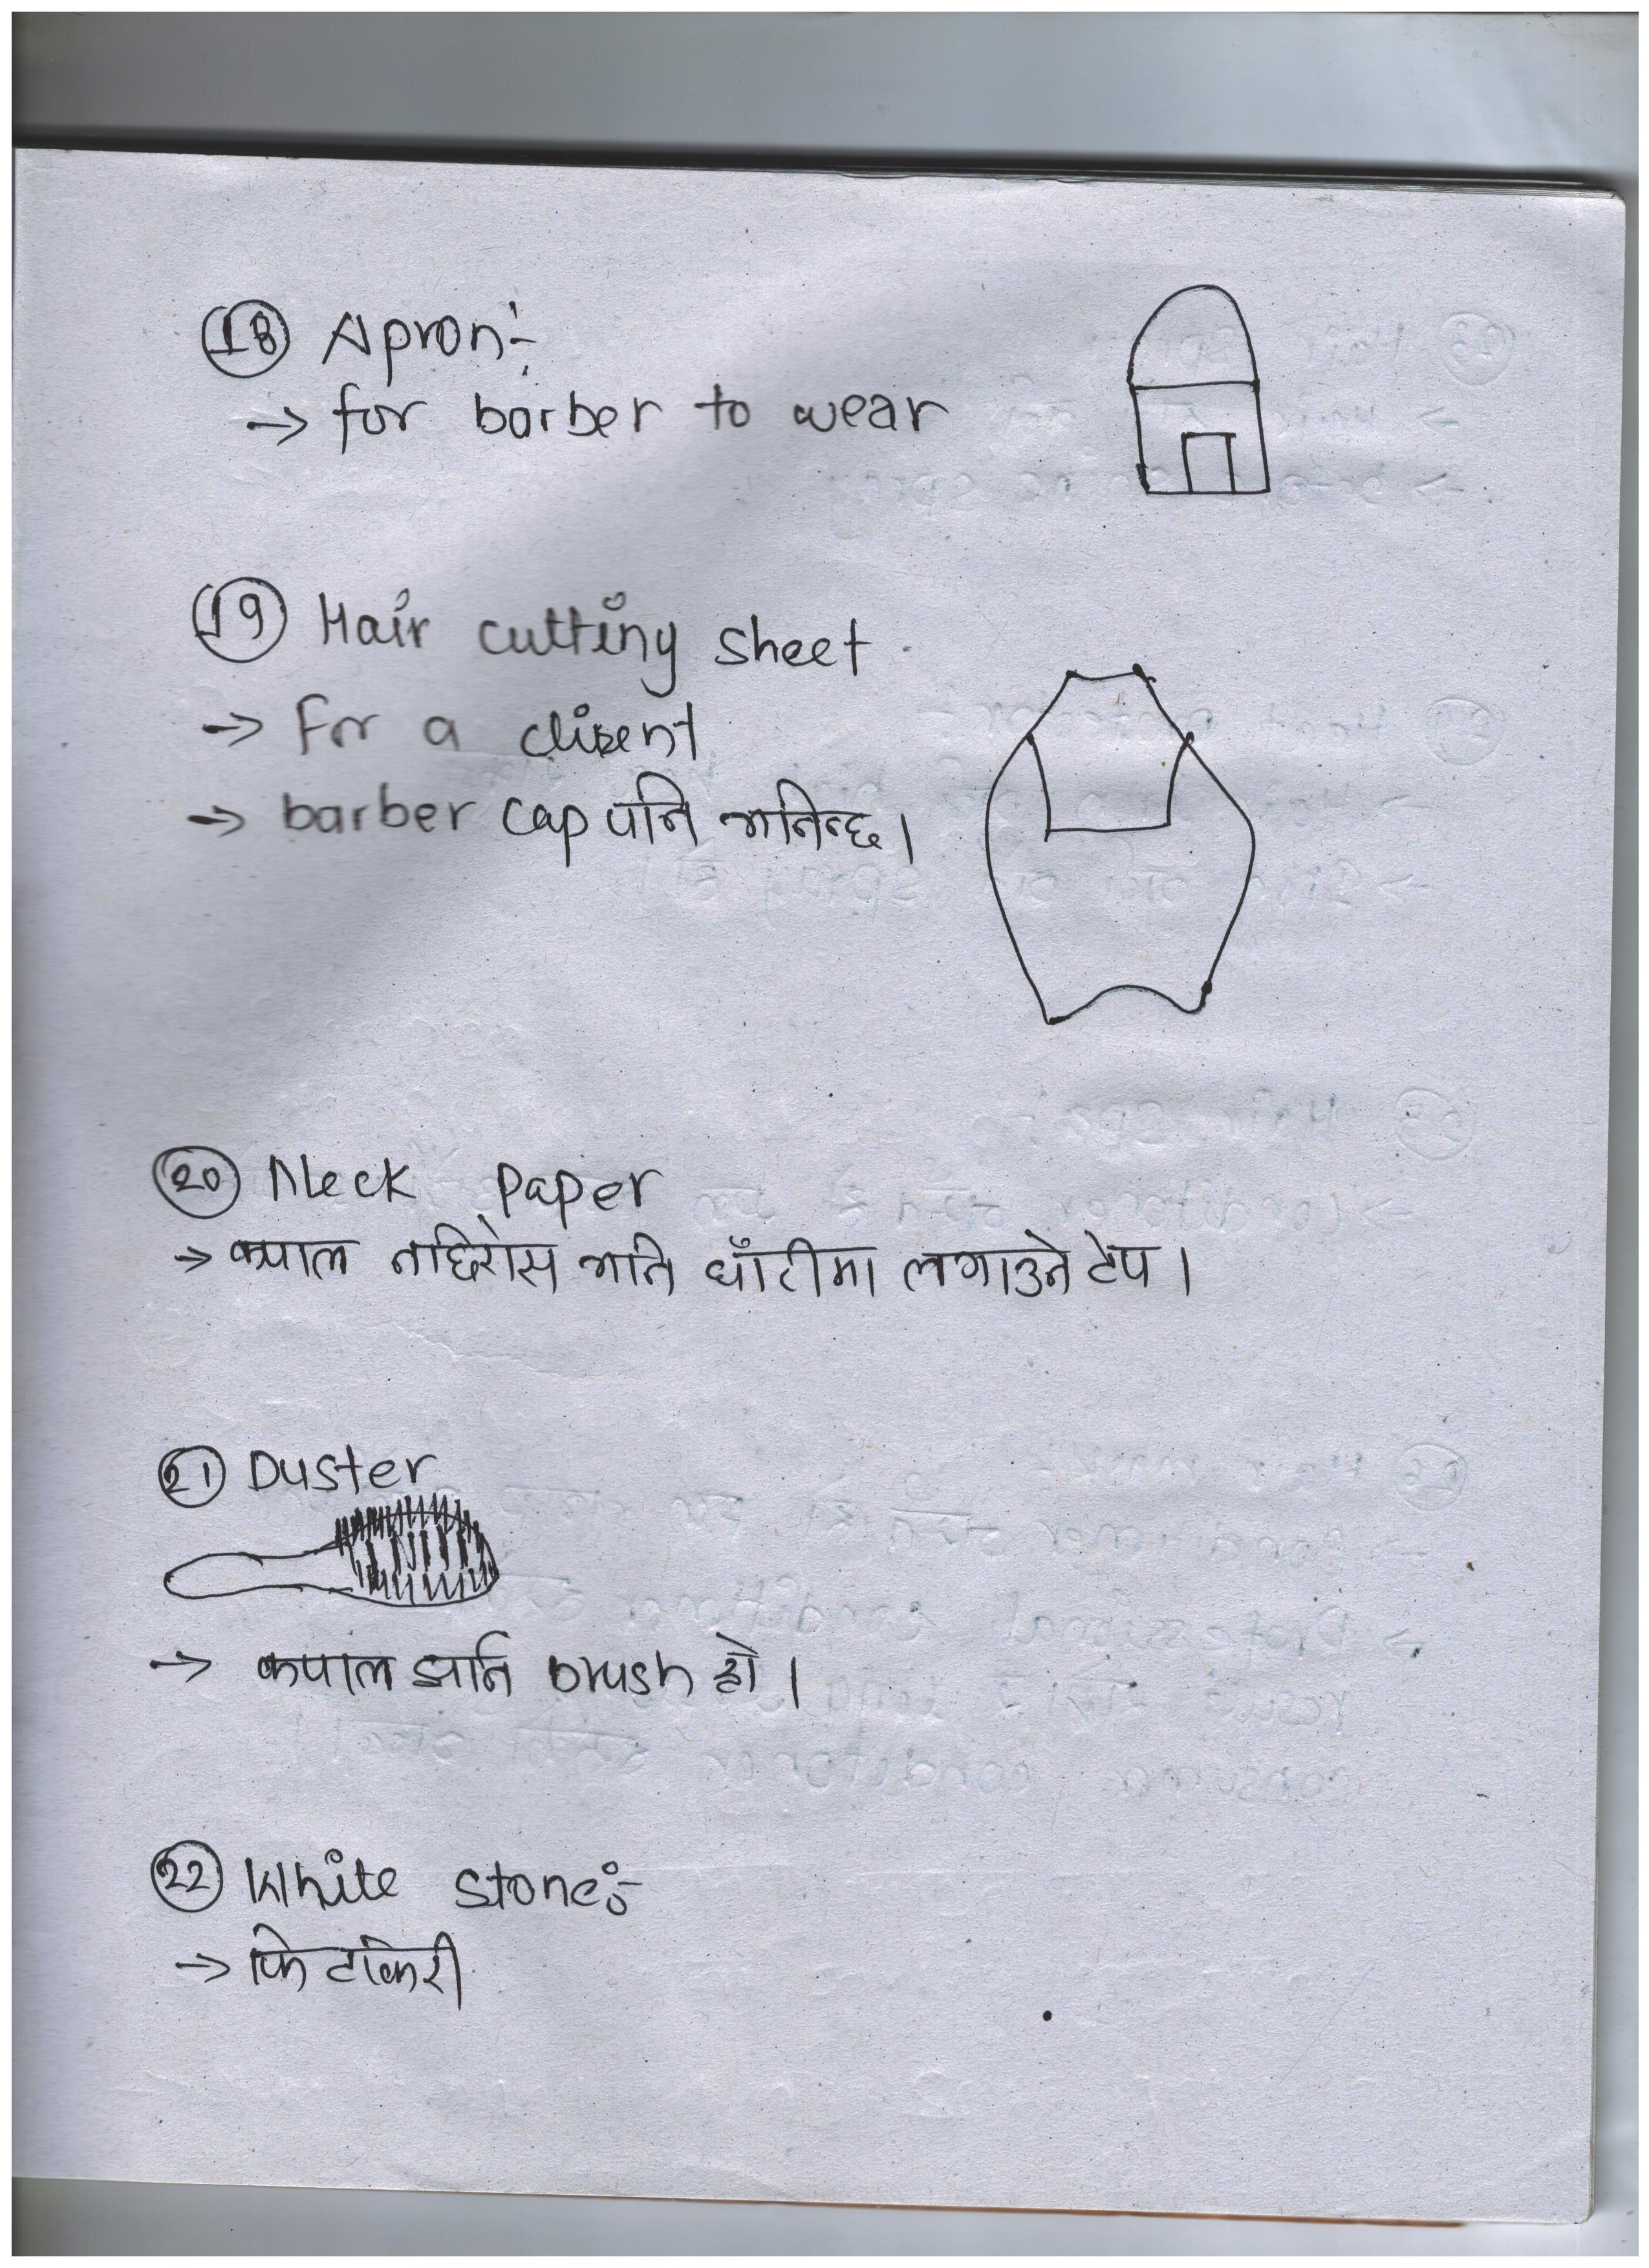 18 Apron:-
→ for barber to wear
19 Hair cutting sheet
→ For a clisent
→ barber cap पनि भनिन्छ।
20 Neck paper
→ कपाल नछिरोस भनि घाँटीमा लगाउने टेप।
21 Duster
→ कपाल झार्ने brush हो।
22 White stone:-
→ फिटकिरी